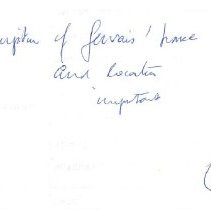 of Gervais' house
and location
important